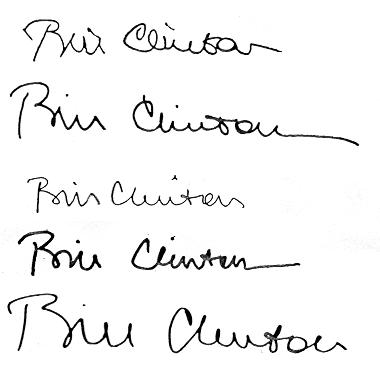 Bill Clinton
Bill Clinton
Bill Clinton
Bill Clinton
Bill Clinton